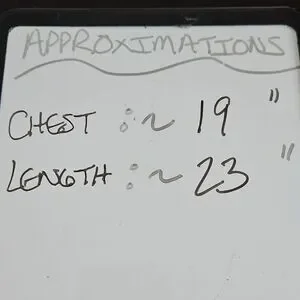 APPROXIMATIONS
CHEST : ~ 19 "
LENGTH : ~ 23 "